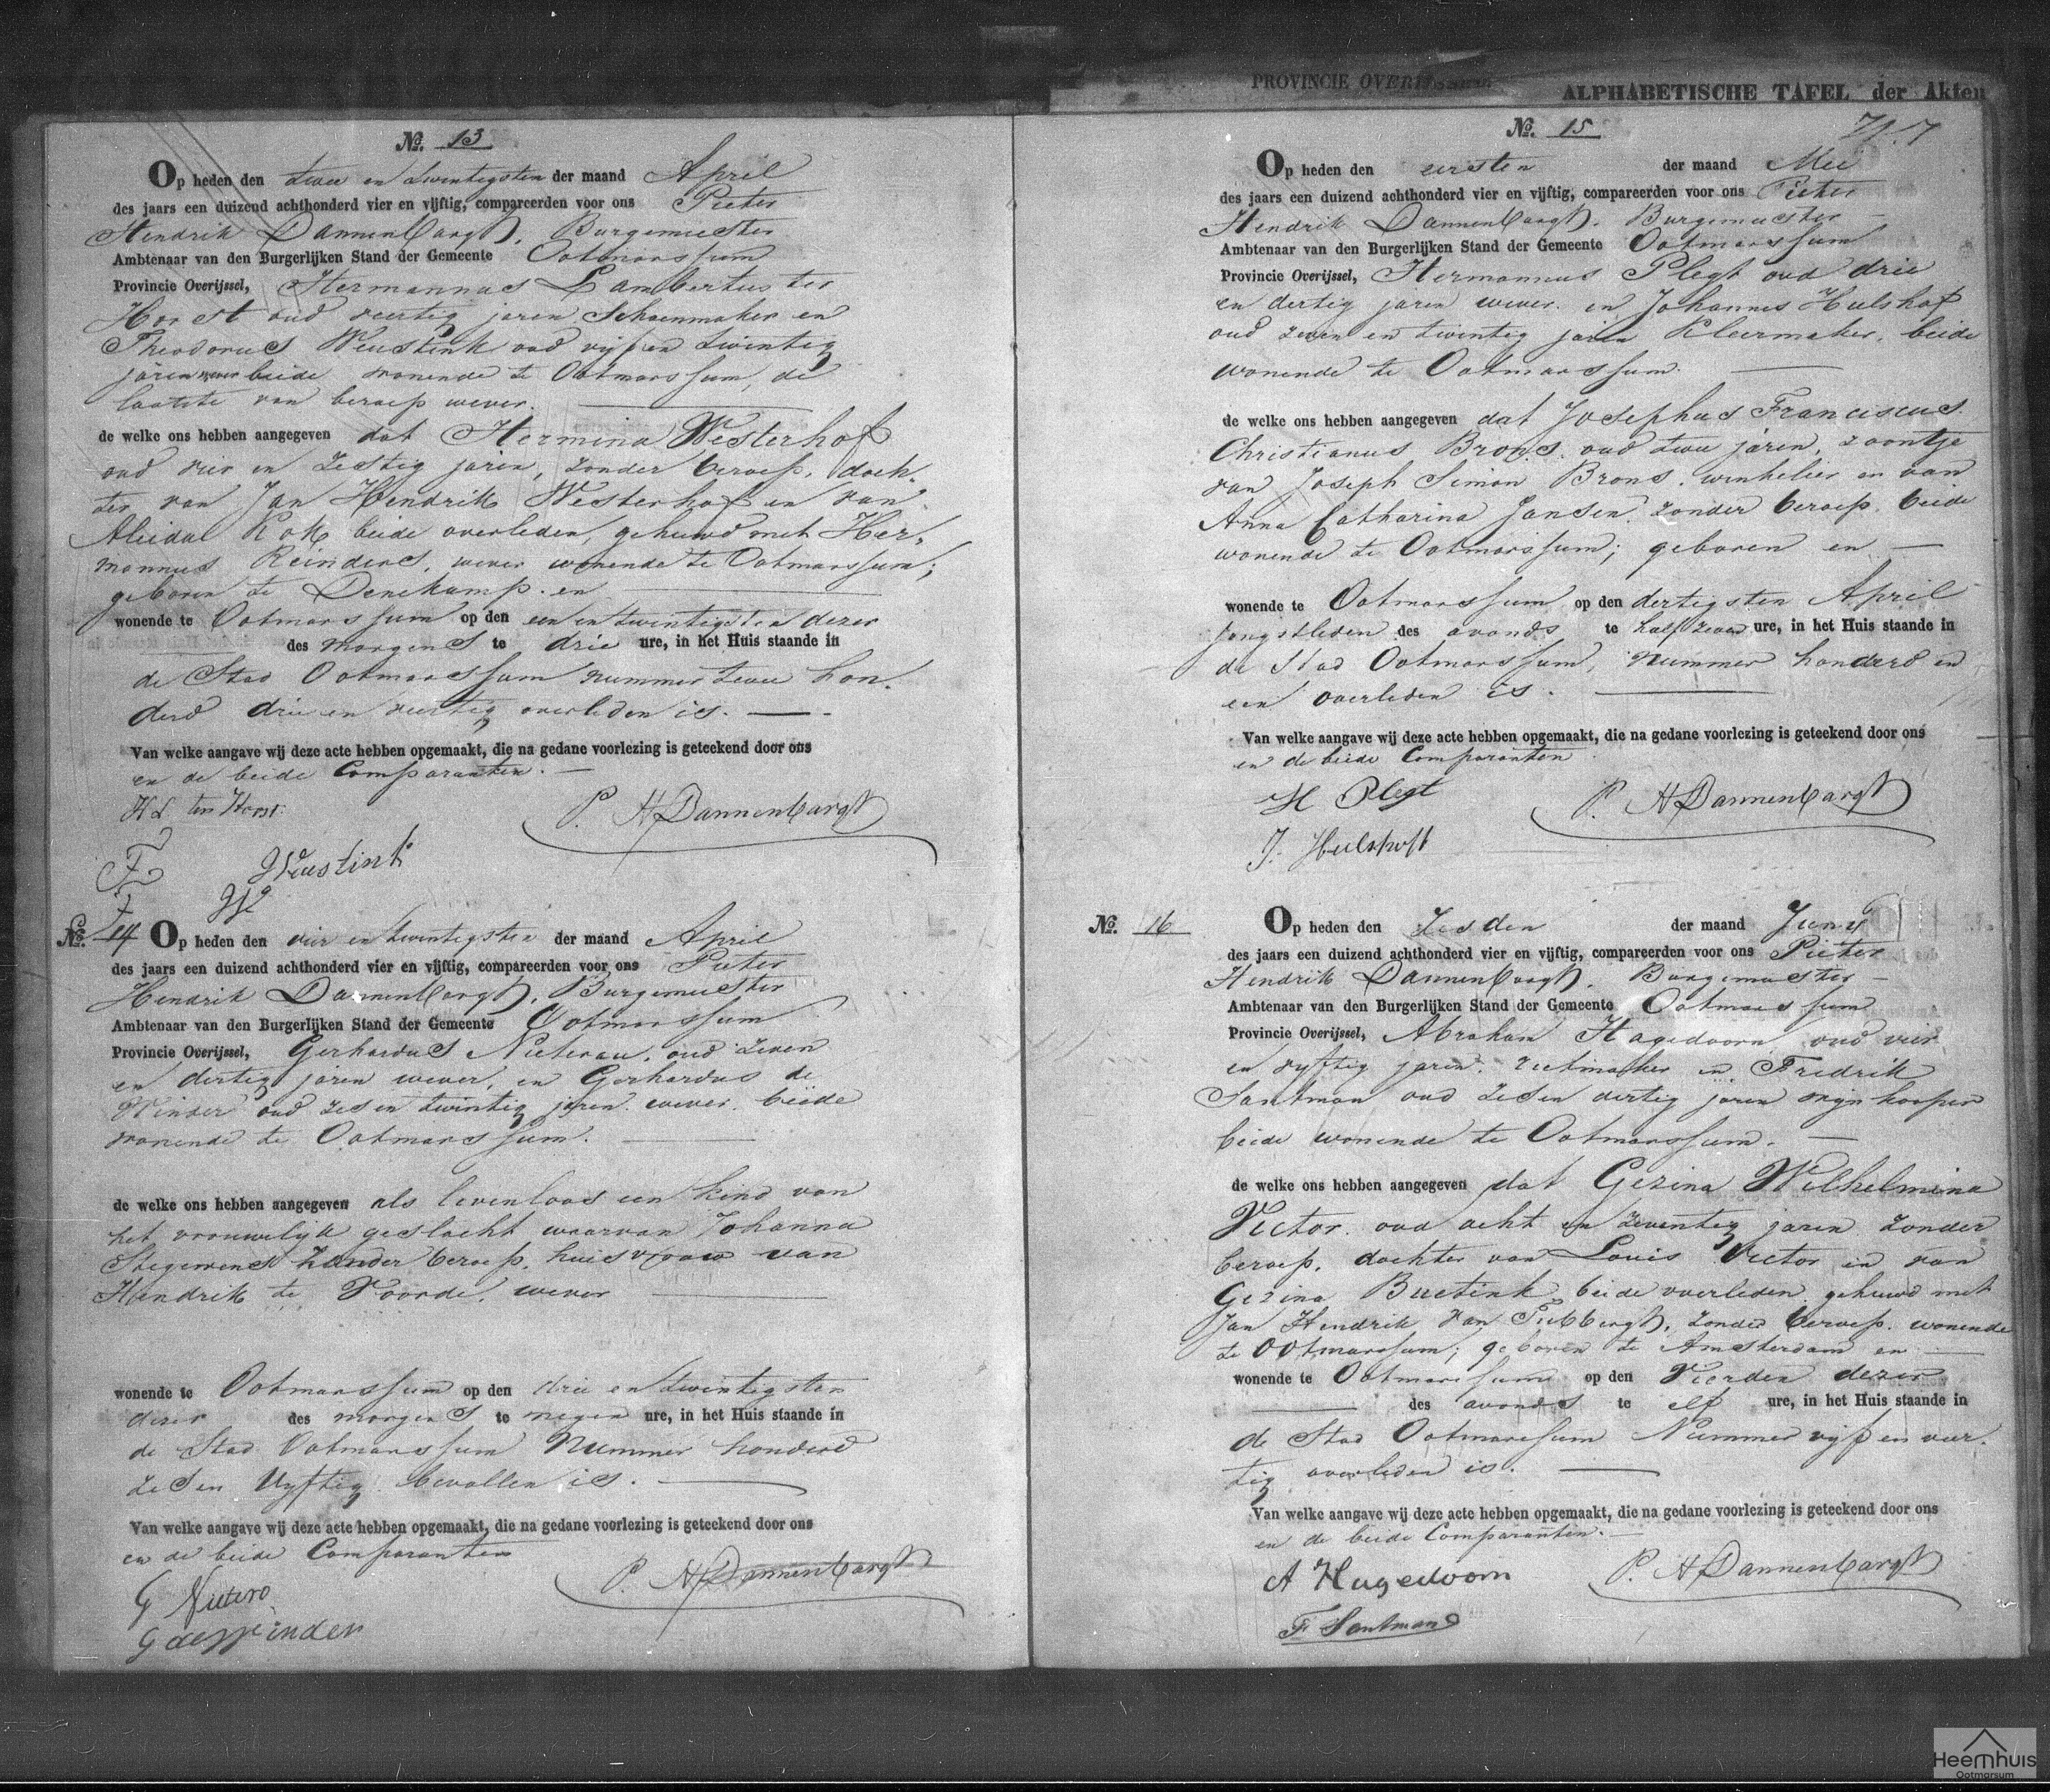 PROVINCIE OVERIJSSEL.
ALPHABETISCHE TAFEL der Akten
No. 13
Op heden den twee en twintigsten der maand April
des jaars een duizend achthonderd vier en vijftig, compareerden voor ons Pieter
Hendrik Dannenbargh, Burgemeester
Ambtenaar van den Burgerlijken Stand der Gemeente Ootmarssum
Provincie Overijssel, Hermannus Lambertus ter
Horst oud veertig jaren Schoenmaker en
Theodorus Weustink oud vijf en twintig
jaren beide wonende te Ootmarssum, de
laatste van beroep wever.
de welke ons hebben aangegeven dat Hermina Westerhof
oud vier en zestig jaren, zonder beroep, doch-
ter van Jan Hendrik Westerhof en van
Aleida Kok beide overleden, gehuwd met Her-
mannus Reinders, wever wonende te Ootmarssum;
geboren te Denekamp en
wonende te Ootmarssum op den een en twintigsten dezer
des morgens te drie ure, in het Huis staande in
de Stad Ootmarssum nummer twee hon-
derd drie en veertig overleden is.
Van welke aangave wij deze acte hebben opgemaakt, die na gedane voorlezing is geteekend door ons
en de beide Comparanten.
H L ter Horst
P. H Dannenbargh
F Weustink
No. 14 Op heden den vier en twintigsten der maand April
des jaars een duizend achthonderd vier en vijftig, compareerden voor ons Pieter
Hendrik Dannenbargh, Burgemeester
Ambtenaar van den Burgerlijken Stand der Gemeente Ootmarssum
Provincie Overijssel, Gerhardus oud zeven
en dertig jaren wever, en Gerhardus de
Winder oud zes en twintig jaren wever beide
wonende te Ootmarssum.
de welke ons hebben aangegeven als levenloos een kind van
het vrouwelijk geslacht waarvan Johanna
Stegerens zonder beroep, huisvrouw van
Hendrik te Voorde, wever
wonende te Ootmarssum op den drie en twintigsten
dezer des morgens te negen ure, in het Huis staande in
de Stad Ootmarssum Nummer honderd
zes en Vyftig bevallen is.
Van welke aangave wij deze acte hebben opgemaakt, die na gedane voorlezing is geteekend door ons
en de beide Comparanten
P. H Dannenbargh
G
G de Winder
No. 15
Op heden den eersten der maand Mei
des jaars een duizend achthonderd vier en vijftig, compareerden voor ons Pieter
Hendrik Dannenbargh, Burgemeester
Ambtenaar van den Burgerlijken Stand der Gemeente Ootmarssum
Provincie Overijssel, Hermannus Plegt oud drie
en dertig jaren wever en Johannes Hulshof
oud zeven en twintig jaren Kleermaker, beide
wonende te Ootmarssum.
de welke ons hebben aangegeven dat Josephus Franciscus
Christianus Brons oud twee jaren, zoontje
van Joseph Simon Brons, winkelier en van
Anna Catharina Jansen, zonder beroep beide
wonende te Ootmarssum; geboren en
wonende te Ootmarssum op den dertigsten April
jongstleden des avonds te half zeven ure, in het Huis staande in
de Stad Ootmarssum, nummer honderd en
een overleden is.
Van welke aangave wij deze acte hebben opgemaakt, die na gedane voorlezing is geteekend door ons
en de beide Comparanten
H Plegt
P. H Dannenbargh
J. Hulshoff
No. 16 Op heden den Zesden der maand Juny
des jaars een duizend achthonderd vier en vijftig, compareerden voor ons Pieter
Hendrik Dannenbargh, Burgemeester
Ambtenaar van den Burgerlijken Stand der Gemeente Ootmarssum
Provincie Overijssel, Abraham Hagedoorn oud vier
en vyftig jaren, rietmaker en Fredrik
Santman oud zes en dertig jaren wijnkooper
beide wonende te Ootmarssum.
de welke ons hebben aangegeven dat Gezina Wilhelmina
Victor oud acht en zeventig jaren zonder
beroep, dochter van Louis Victor en van
Gezina Buetink beide overleden gehuwd met
Jan Hendrik van zonder beroep wonende
te Ootmarssum; geboren te Amsterdam en
wonende te Ootmarssum op den Vierden dezer
des avonds te elf ure, in het Huis staande in
de Stad Ootmarssum Nummer vijf en veer-
tig overleden is.
Van welke aangave wij deze acte hebben opgemaakt, die na gedane voorlezing is geteekend door ons
en de beide Comparanten.
A Hagedoorn
P. H Dannenbargh
F Santman
Heemhuis
Ootmarsum